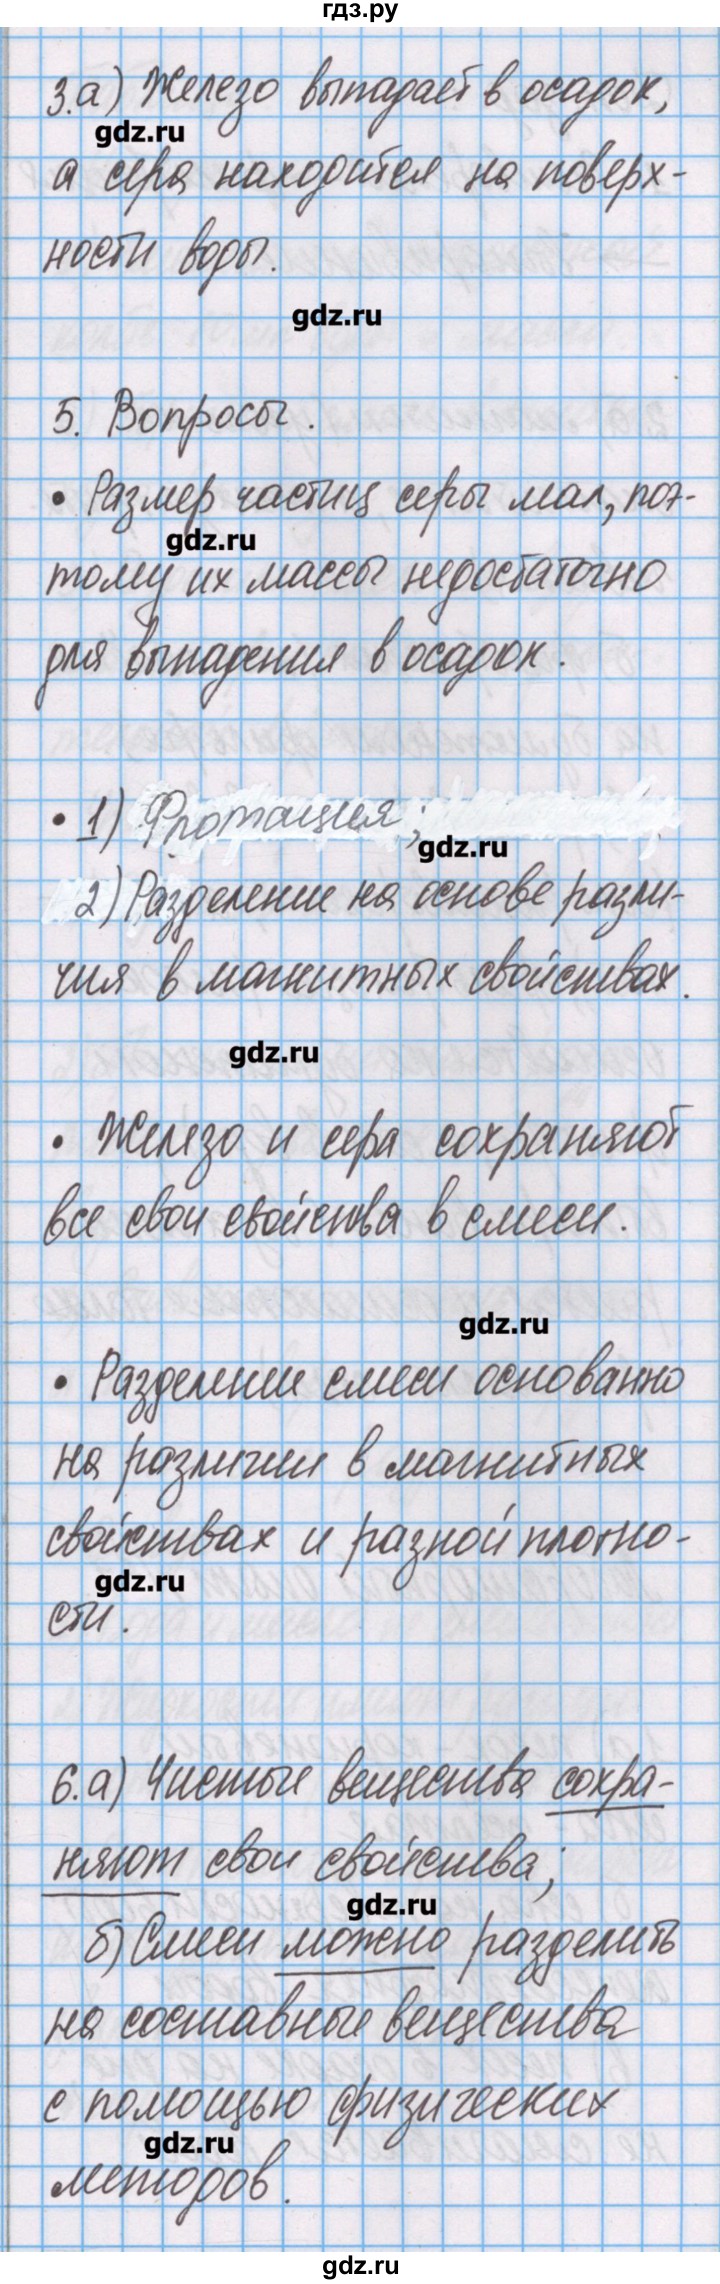 гдз.ру
3.а) Железо выпадает в осадок,
gdz.ru
а сера находится на поверх-
ности воды.
gdz.ru
5. Вопросы.
• Размер частиц серы мал, поэ-
gdz.ru
тому их массы недостаточно
для выпадения в осадок.
• 1) Флотация;
gdz.ru
2) Разделение на основе разли-
чия в магнитных свойствах.
gdz.ru
• Железо и сера сохраняют
все свои свойства в смеси.
gdz.ru
• Разделение смеси основанно
на различии в магнитных
свойствах и разной плотно-
gdz.ru
сти.
6.а) Чистые вещества сохра-
няют свои свойства;
gdz.ru
б) Смеси можно разделить
на составные вещества
с помощью физических
gdz.ru
методов.
gdz.ru